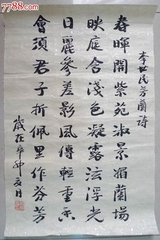 李世民芳蘭詩
春暉開紫苑淑景媚蘭場
映庭含淺色凝露泫浮光
日麗參差影風傳輕重香
會須君子折里作芬芳
歲在申月